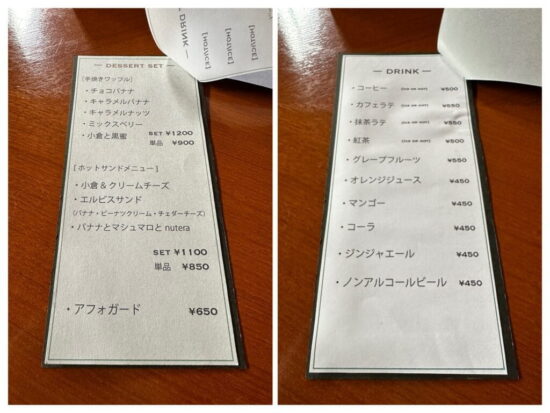 — DESSERT SET —
[手焼きワッフル]
・チョコバナナ
・キャラメルバナナ
・キャラメルナッツ
・ミックスベリー
・小倉と黒蜜
SET ¥1200
単品 ¥900
[ホットサンドメニュー]
・小倉&クリームチーズ
・エルビスサンド
(バナナ・ピーナツクリーム・チェダーチーズ)
・バナナとマシュマロと nutera
SET ¥1100
単品 ¥850
・アフォガード ¥650
DRINK
— DRINK —
・コーヒー (ICE OR HOT) ¥500
・カフェラテ (ICE OR HOT) ¥550
・抹茶ラテ (ICE OR HOT) ¥550
・紅茶 (ICE OR HOT) ¥500
・グレープフルーツ ¥550
・オレンジジュース ¥450
・マンゴー ¥450
・コーラ ¥450
・ジンジャエール ¥450
・ノンアルコールビール ¥450